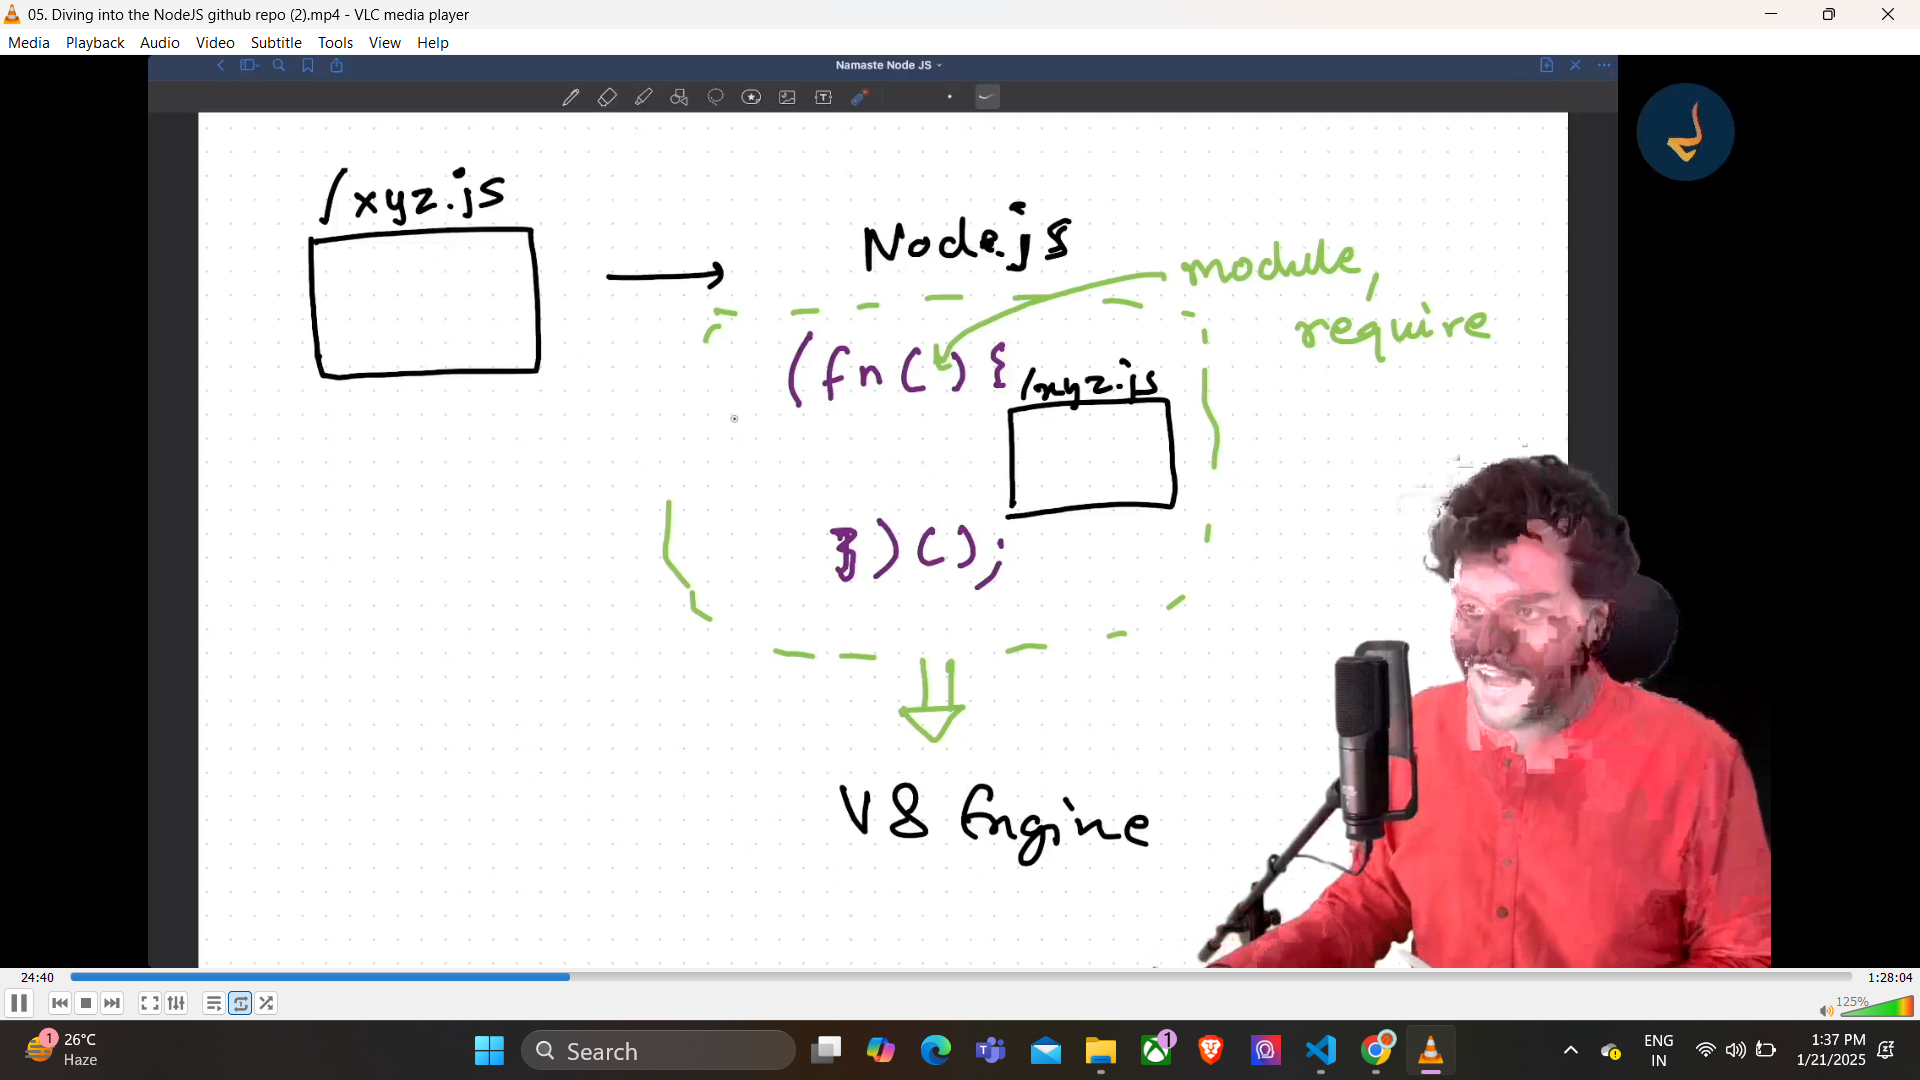 05. Diving into the NodeJS github repo (2).mp4 - VLC media player
Media Playback Audio Video Subtitle Tools View Help
Namaste Node JS
/xyz.js
Node.js
module,
require
(fn() {
/xyz.js
})();
V8 Engine
24:40
1:28:04
125%
1
26°C
Haze
Search
1
ENG
IN
1:37 PM
1/21/2025